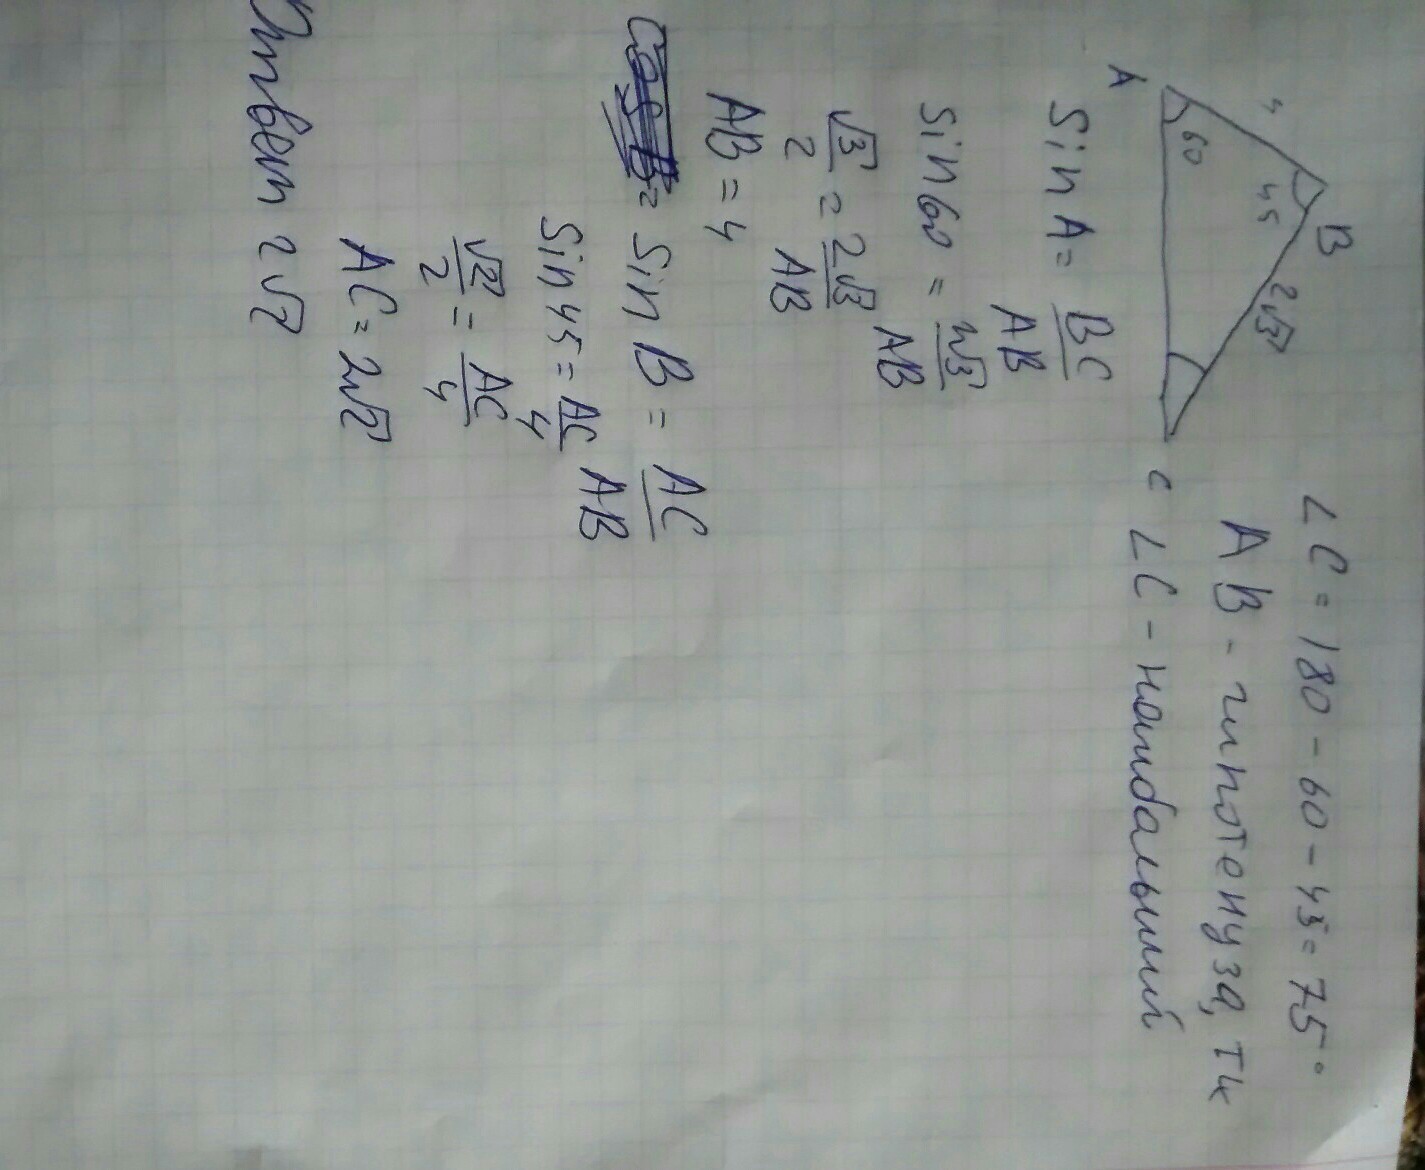 B
4
45
2√3
A
60
C
∠C = 180 - 60 - 45 = 75°
AB - гипотенуза, тк
∠C - наибальший
Sin A = BC/AB
Sin 60 = 2√3/AB
√3/2 = 2√3/AB
AB = 4
Sin B = AC/AB
Sin 45 = AC/4
√2/2 = AC/4
AC = 2√2
Ответ 2√2